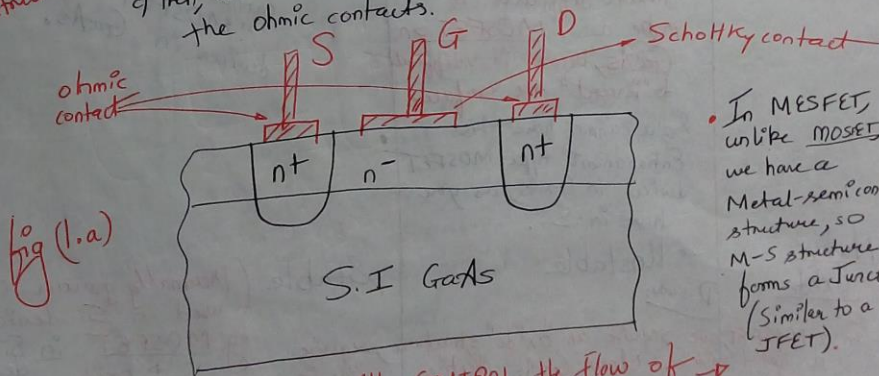 the ohmic contacts.
S
G
D
Schottky contact
ohmic
contact
n+
n-
n+
fig (1.a)
S.I GaAs
• In MESFET,
unlike MOSFET
we have a
Metal-semicon
structure, so
M-S structure
forms a Junc
(Similar to a
JFET).
the flow of